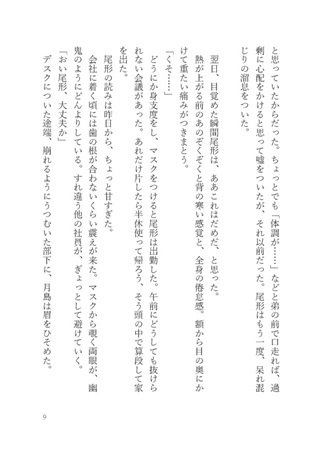 と思っていたからだった。ちょっとでも「体調が……」などと弟の前で口走れば、過
剰に心配をかけると思って嘘をついたが、それ以前だった。尾形はもう一度、呆れ混
じりの溜息をついた。
翌日、目覚めた瞬間尾形は、ああこれはだめだ、と思った。
熱が上がる前のあのぞくぞくと背の寒い感覚と、全身の倦怠感。額から目の奥にか
けて重たい痛みがつきまとう。
「くそ……」
どうにか身支度をし、マスクをつけると尾形は出勤した。午前にどうしても抜けら
れない会議があった。あれだけ片したら半休使って帰ろう、そう頭の中で算段して家
を出た。
尾形の読みは昨日から、ちょっと甘すぎた。
会社に着く頃には歯の根が合わないくらい震えが来た。マスクから覗く両眼が、幽
鬼のようにどんよりしている。すれ違う他の社員が、ぎょっとして避けていく。
「おい尾形、大丈夫か」
デスクについた途端、崩れるようにうつむいた部下に、月島は眉をひそめた。
9